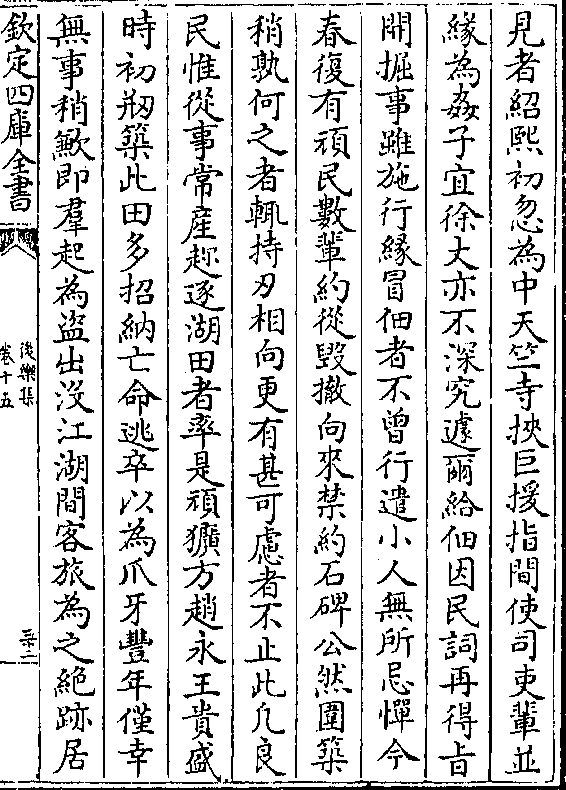 見者紹熙初忽為中天竺寺挾巨援指間使司吏輩並
緣為姦子宜徐大亦不深究遽爾給佃因民詞再得旨
開掘事雖施行緣冒佃者不曾行遣小人無所忌憚今
春復有頑民數輩約從毀撤向來禁約石碑公然圍築
稍孰何之者輒持刃相向更有甚可慮者不止此凡良
民惟從事常産趂逐湖田者率是頑獷方趙永王貴盛
時初剏築此田多招納亡命逃卒以為爪牙豐年僅幸
無事稍歉即羣起為盗出没江湖間客旅為之絶跡居
欽定四庫全書
後樂集
卷十五